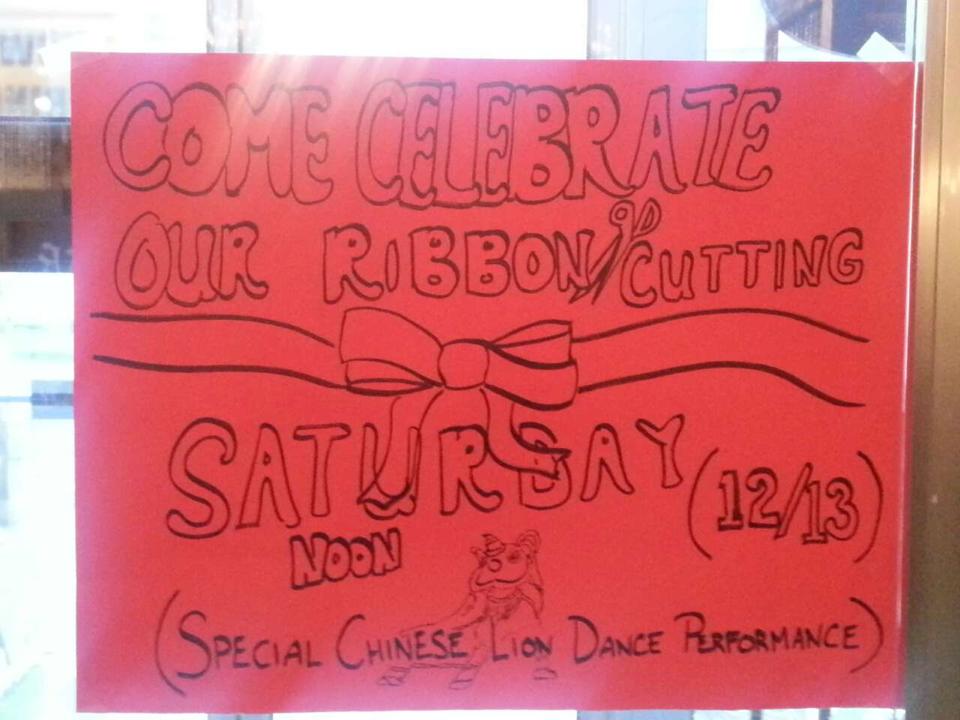 COME CELEBRATE
OUR RIBBON CUTTING
SATURDAY (12/13)
NOON
(SPECIAL CHINESE LION DANCE PERFORMANCE)